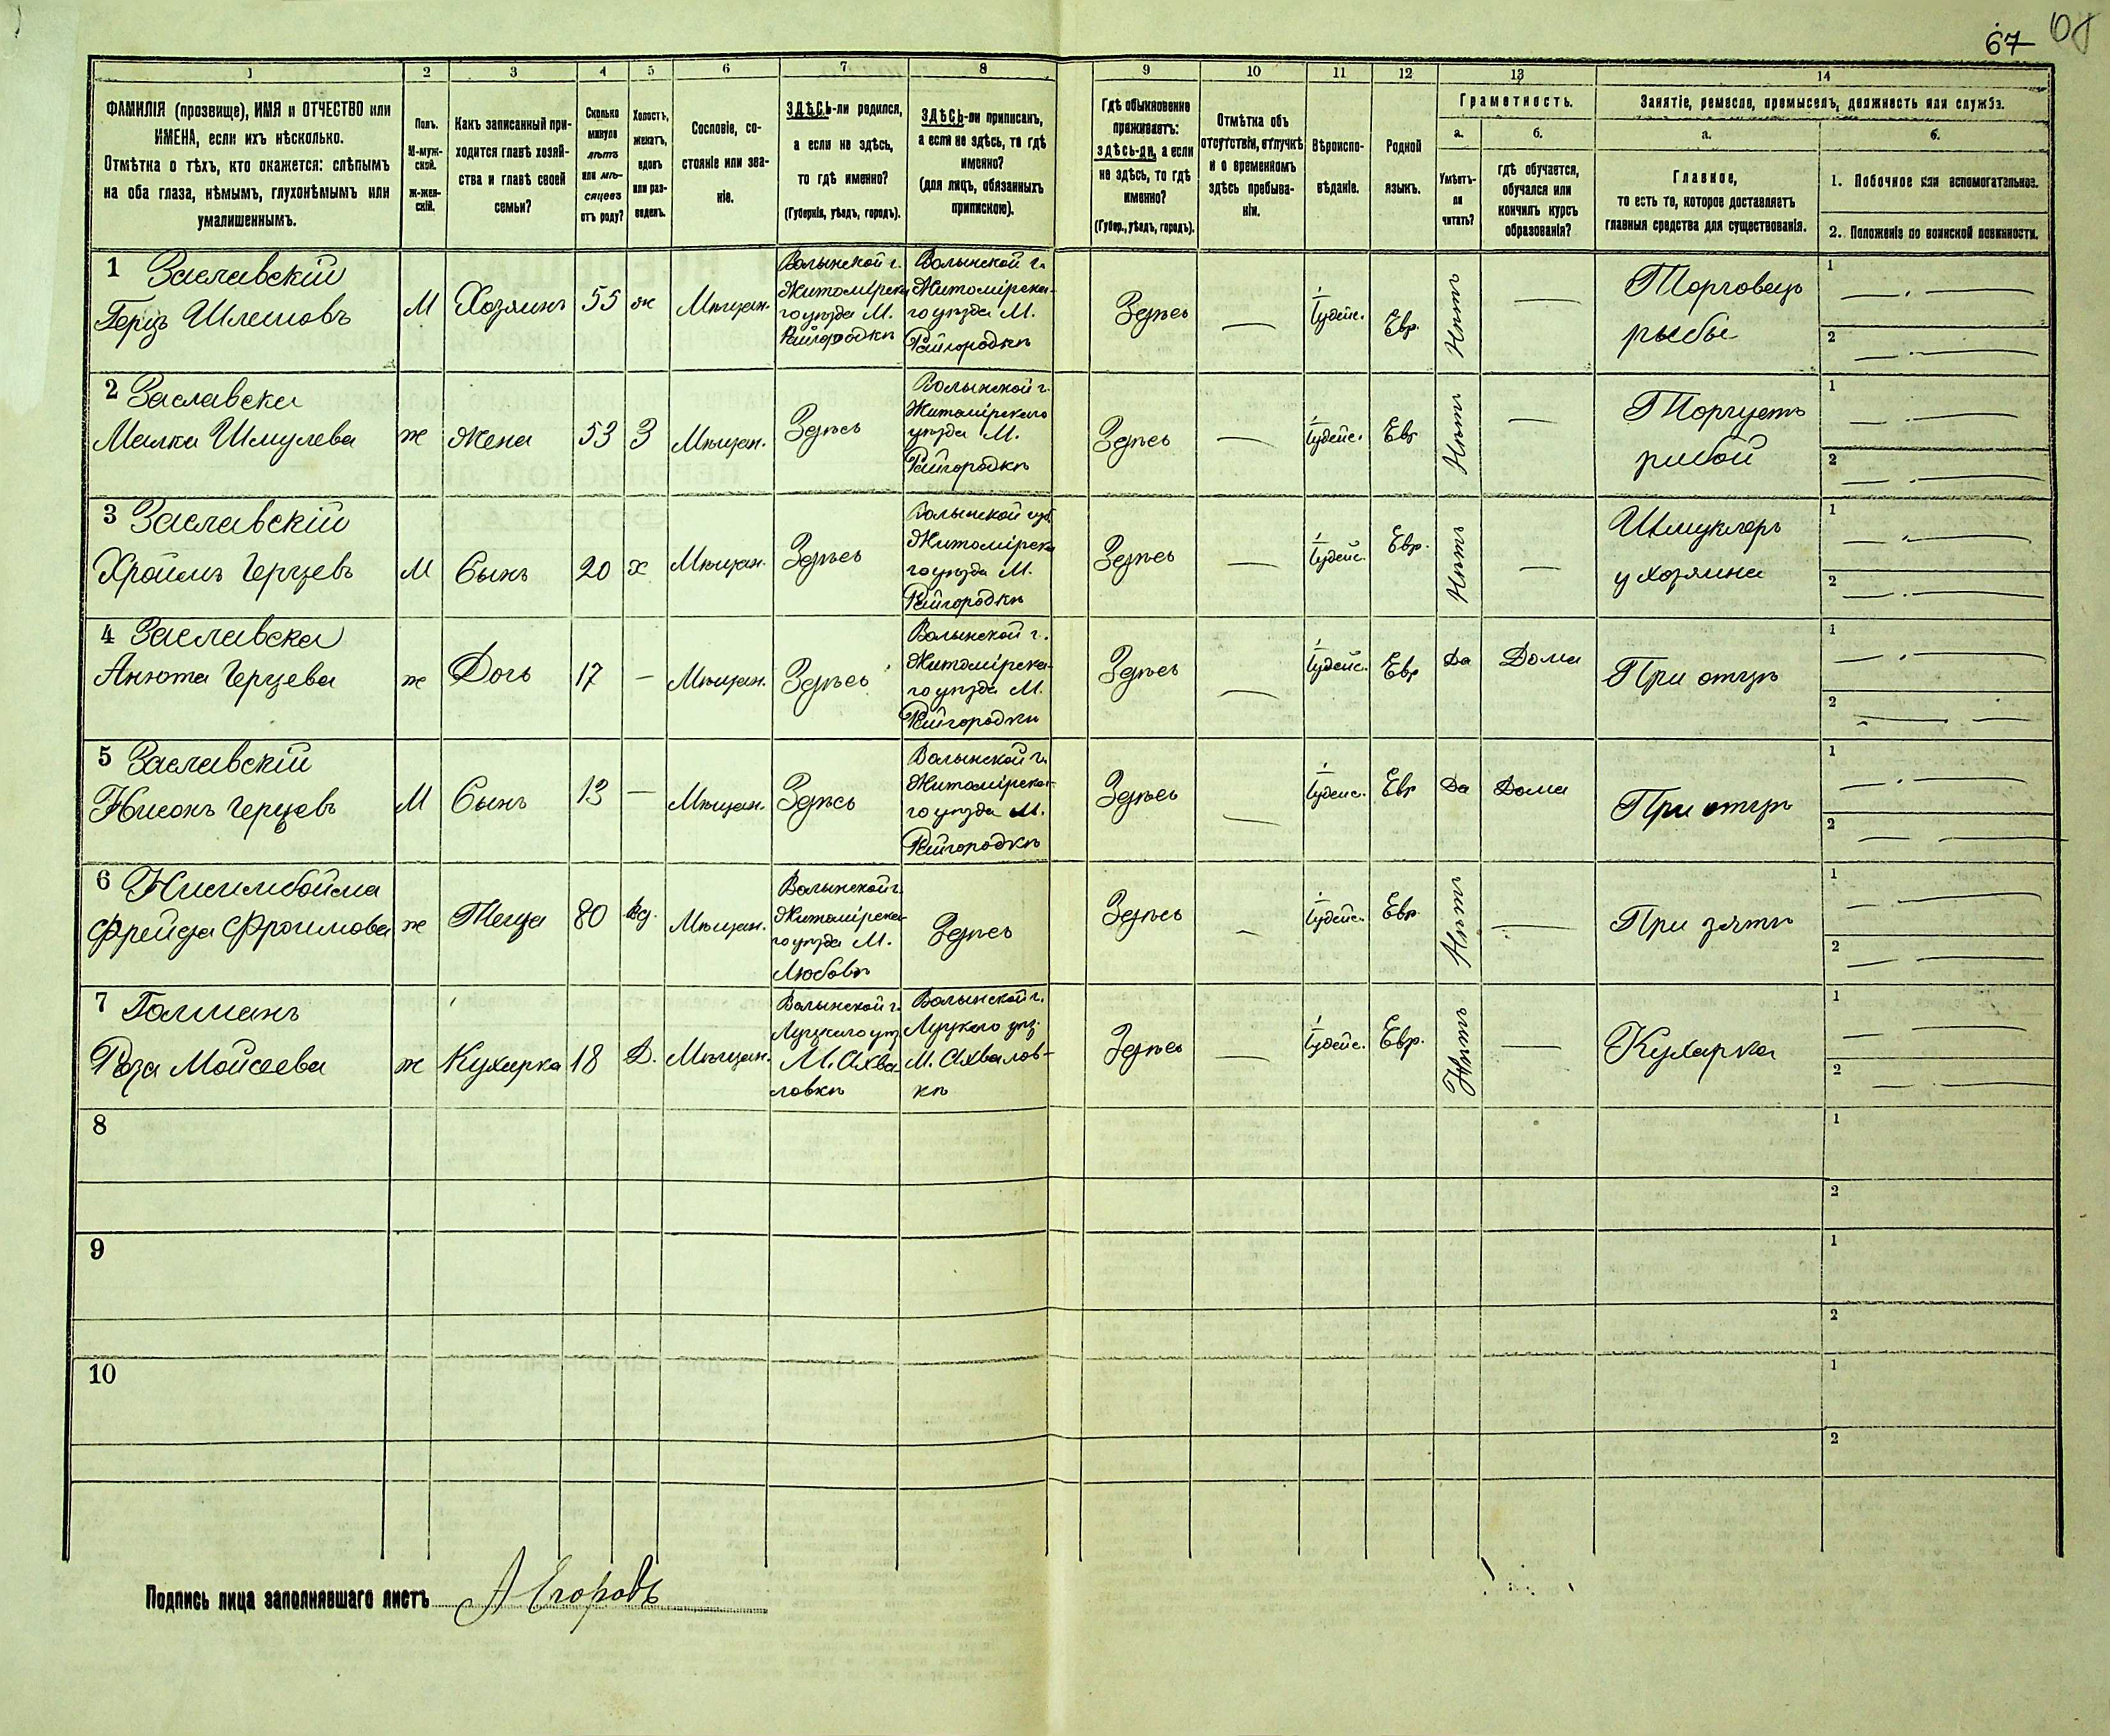 67
1 2 3 4 5 6 7 8 9 10 11 12 13 14
ФАМИЛІЯ (прозвище), ИМЯ и ОТЧЕСТВО или
ИМЕНА, если ихъ нѣсколько.
Отмѣтка о тѣхъ, кто окажется: слѣпымъ
на оба глаза, нѣмымъ, глухонѣмымъ или
умалишеннымъ.
Полъ.
М-муж-
ской.
Ж-жен-
скій.
Какъ записанный при-
ходится главѣ хозяй-
ства и главѣ своей
семьи?
Сколько
минуло
лѣтъ
или мѣ-
сяцевъ
отъ роду?
Холостъ,
женатъ,
вдовъ
или раз-
веденъ.
Сословіе, со-
стояніе или зва-
ніе.
ЗДѢСЬ-ли родился,
а если не здѣсь,
то гдѣ именно?
(Губернія, уѣздъ, городъ).
ЗДѢСЬ-ли приписанъ,
а если не здѣсь, то гдѣ
именно?
(для лицъ, обязанныхъ
припискою).
Гдѣ обыкновенно
проживаетъ:
здѣсь-ли, а если
не здѣсь, то гдѣ
именно?
(Губер., уѣздъ, городъ).
Отмѣтка объ
отсутствіи, отлучкѣ
и о временномъ
здѣсь пребыва-
ніи.
Вѣроиспо-
вѣданіе.
Родной
языкъ.
Грамотность.
а.
Умѣетъ-
ли
читать?
б.
гдѣ обучается,
обучался или
кончилъ курсъ
образованія?
Занятіе, ремесло, промыселъ, должность или служба.
а.
Главное,
то есть то, которое доставляетъ
главныя средства для существованія.
б.
1. Побочное или вспомогательное.
2. Положеніе по воинской повинности.
1 Заславскій
Герцъ Шлемовъ
М
Хозяинъ
55
ж
Мѣщан.
Волынской г.
Житомірска
го уѣзда М.
Райгородкѣ
Волынской г.
Житомірска-
го уѣзда М.
Райгородкѣ
Здѣсь
—
Іудейс.
Евр.
Нѣтъ
—
Торговецъ
рыбы
1 —
2 —
2 Заславска
Малка Шмулева
ж
Жена
53
З
Мѣщан.
Здѣсь
Волынской г.
Житомірскаго
уѣзда М.
Райгородкѣ
Здѣсь
—
Іудейс.
Евр
Нѣтъ
—
Торгуетъ
рибой
1 —
2 —
3 Заславскій
Хроимъ Герцевъ
М
Сынъ
20
х
Мѣщан.
Здѣсь
Волынской губ.
Житомірска
го уѣзда М.
Райгородкѣ
Здѣсь
—
Іудейс.
Евр.
Нѣтъ
—
Шмуклеръ
у хозяина
1 —
2 —
4 Заславска
Анюта Герцева
ж
Дочь
17
—
Мѣщан.
Здѣсь
Волынской г.
Житомірска-
го уѣзда М.
Райгородкѣ
Здѣсь
—
Іудейс.
Евр
Да
Дома
При отцѣ
1 —
2 —
5 Заславскій
Нисонъ Герцевъ
М
Сынъ
13
—
Мѣщан.
Здѣсь
Волынской г.
Житомірска-
го уѣзда М.
Райгородкѣ
Здѣсь
—
Іудейс.
Евр
Да
Дома
При отцѣ
1 —
2 —
6
Фрейда Фроимова
ж
Теща
80
вд.
Мѣщан.
Волынской г.
Житомірска-
го уѣзда М.
Любовѣ
Здѣсь
Здѣсь
—
Іудейс.
Евр
Нѣтъ
—
При зятѣ
1 —
2 —
7 Голманъ
Роза Мойсеева
ж
Кухарка
18
Д.
Мѣщан.
Волынской г.
Луцкаго уѣз
М. Ахва-
ловкѣ
Волынской г.
Луцкаго уѣз.
М. Ахвалов-
кѣ
Здѣсь
—
Іудейс.
Евр.
Нѣтъ
—
Кухарка
1 —
2 —
8
1
2
9
1
2
10
1
2
Подпись лица заполнявшаго листъ А Егоровъ